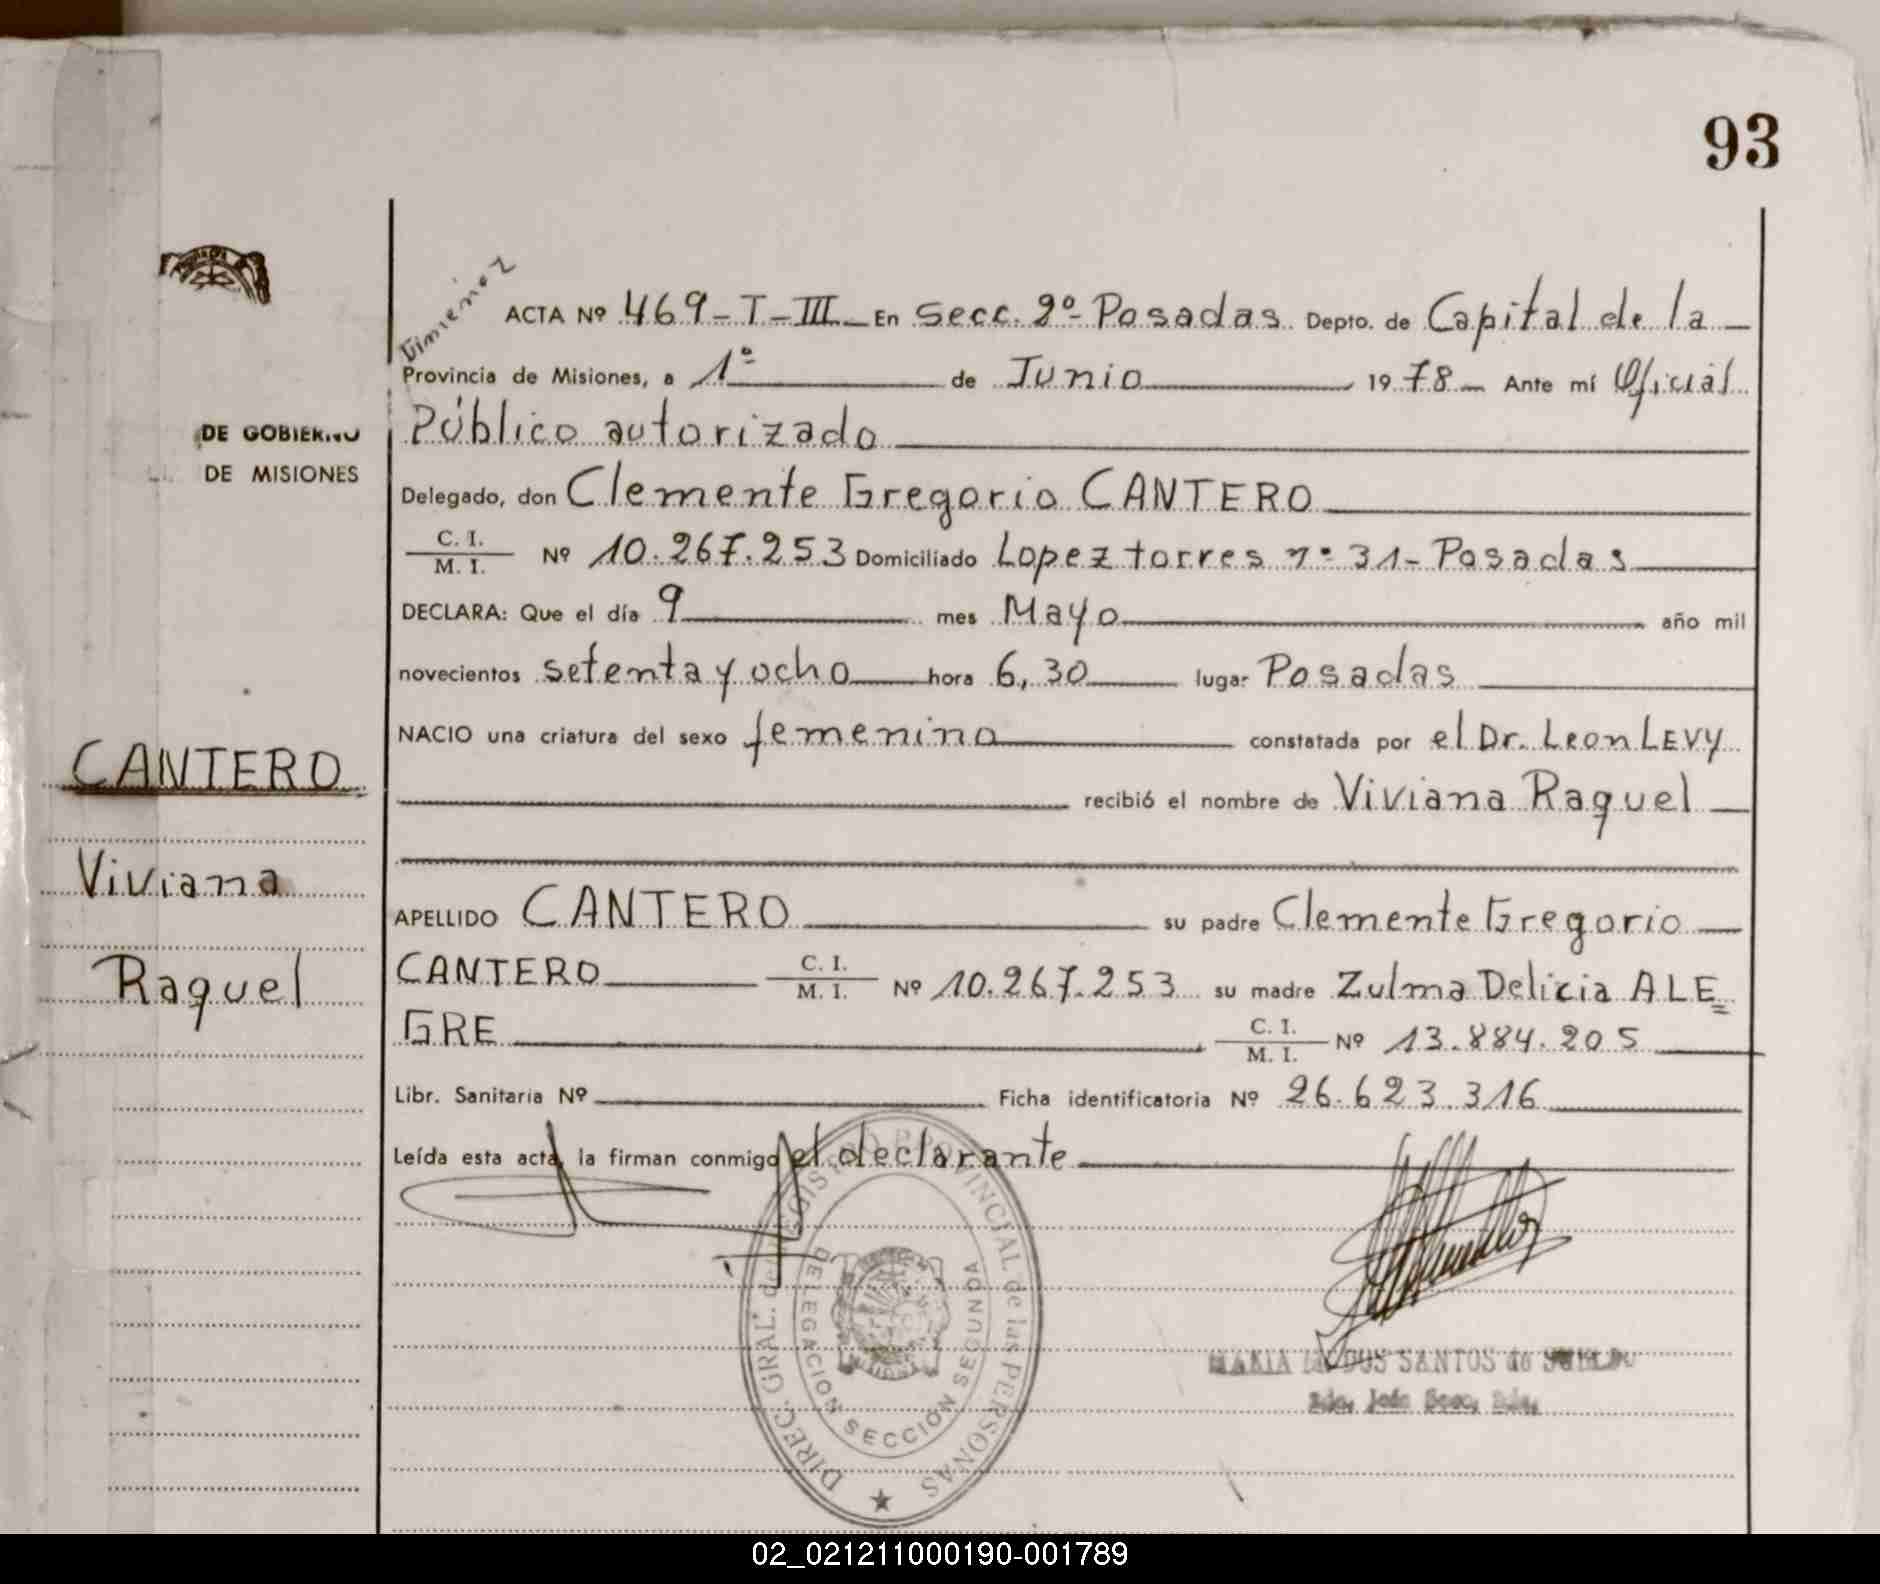 93
Gimenez
ACTA Nº 469-T-III En Secc. 2º- Posadas Depto. de Capital de la
Provincia de Misiones, a 1º de Junio 1978 Ante mí Oficial
DE GOBIERNO
Público autorizado
DE MISIONES
Delegado, don Clemente Gregorio CANTERO
C. I.
M. I. Nº 10.267.253 Domiciliado Lopez torres nº 31- Posadas
DECLARA: Que el día 9 mes Mayo año mil
novecientos setenta y ocho hora 6,30 lugar Posadas
NACIO una criatura del sexo femenino constatada por el Dr. Leon LEVY
CANTERO
recibió el nombre de Viviana Raquel
Viviana
APELLIDO CANTERO su padre Clemente Gregorio
Raquel
CANTERO C. I. M. I. Nº 10.267.253 su madre Zulma Delicia ALE=
GRE C. I. M. I. Nº 13.884.205
Libr. Sanitaria Nº Ficha identificatoria Nº 26.623.316
Leída esta acta, la firman conmigo el declarante
DIREC. GRAL. del REGISTRO PROVINCIAL de las PERSONAS
DELEGACION SECCIÓN SEGUNDA
MARIA DOS SANTOS de
02_021211000190-001789